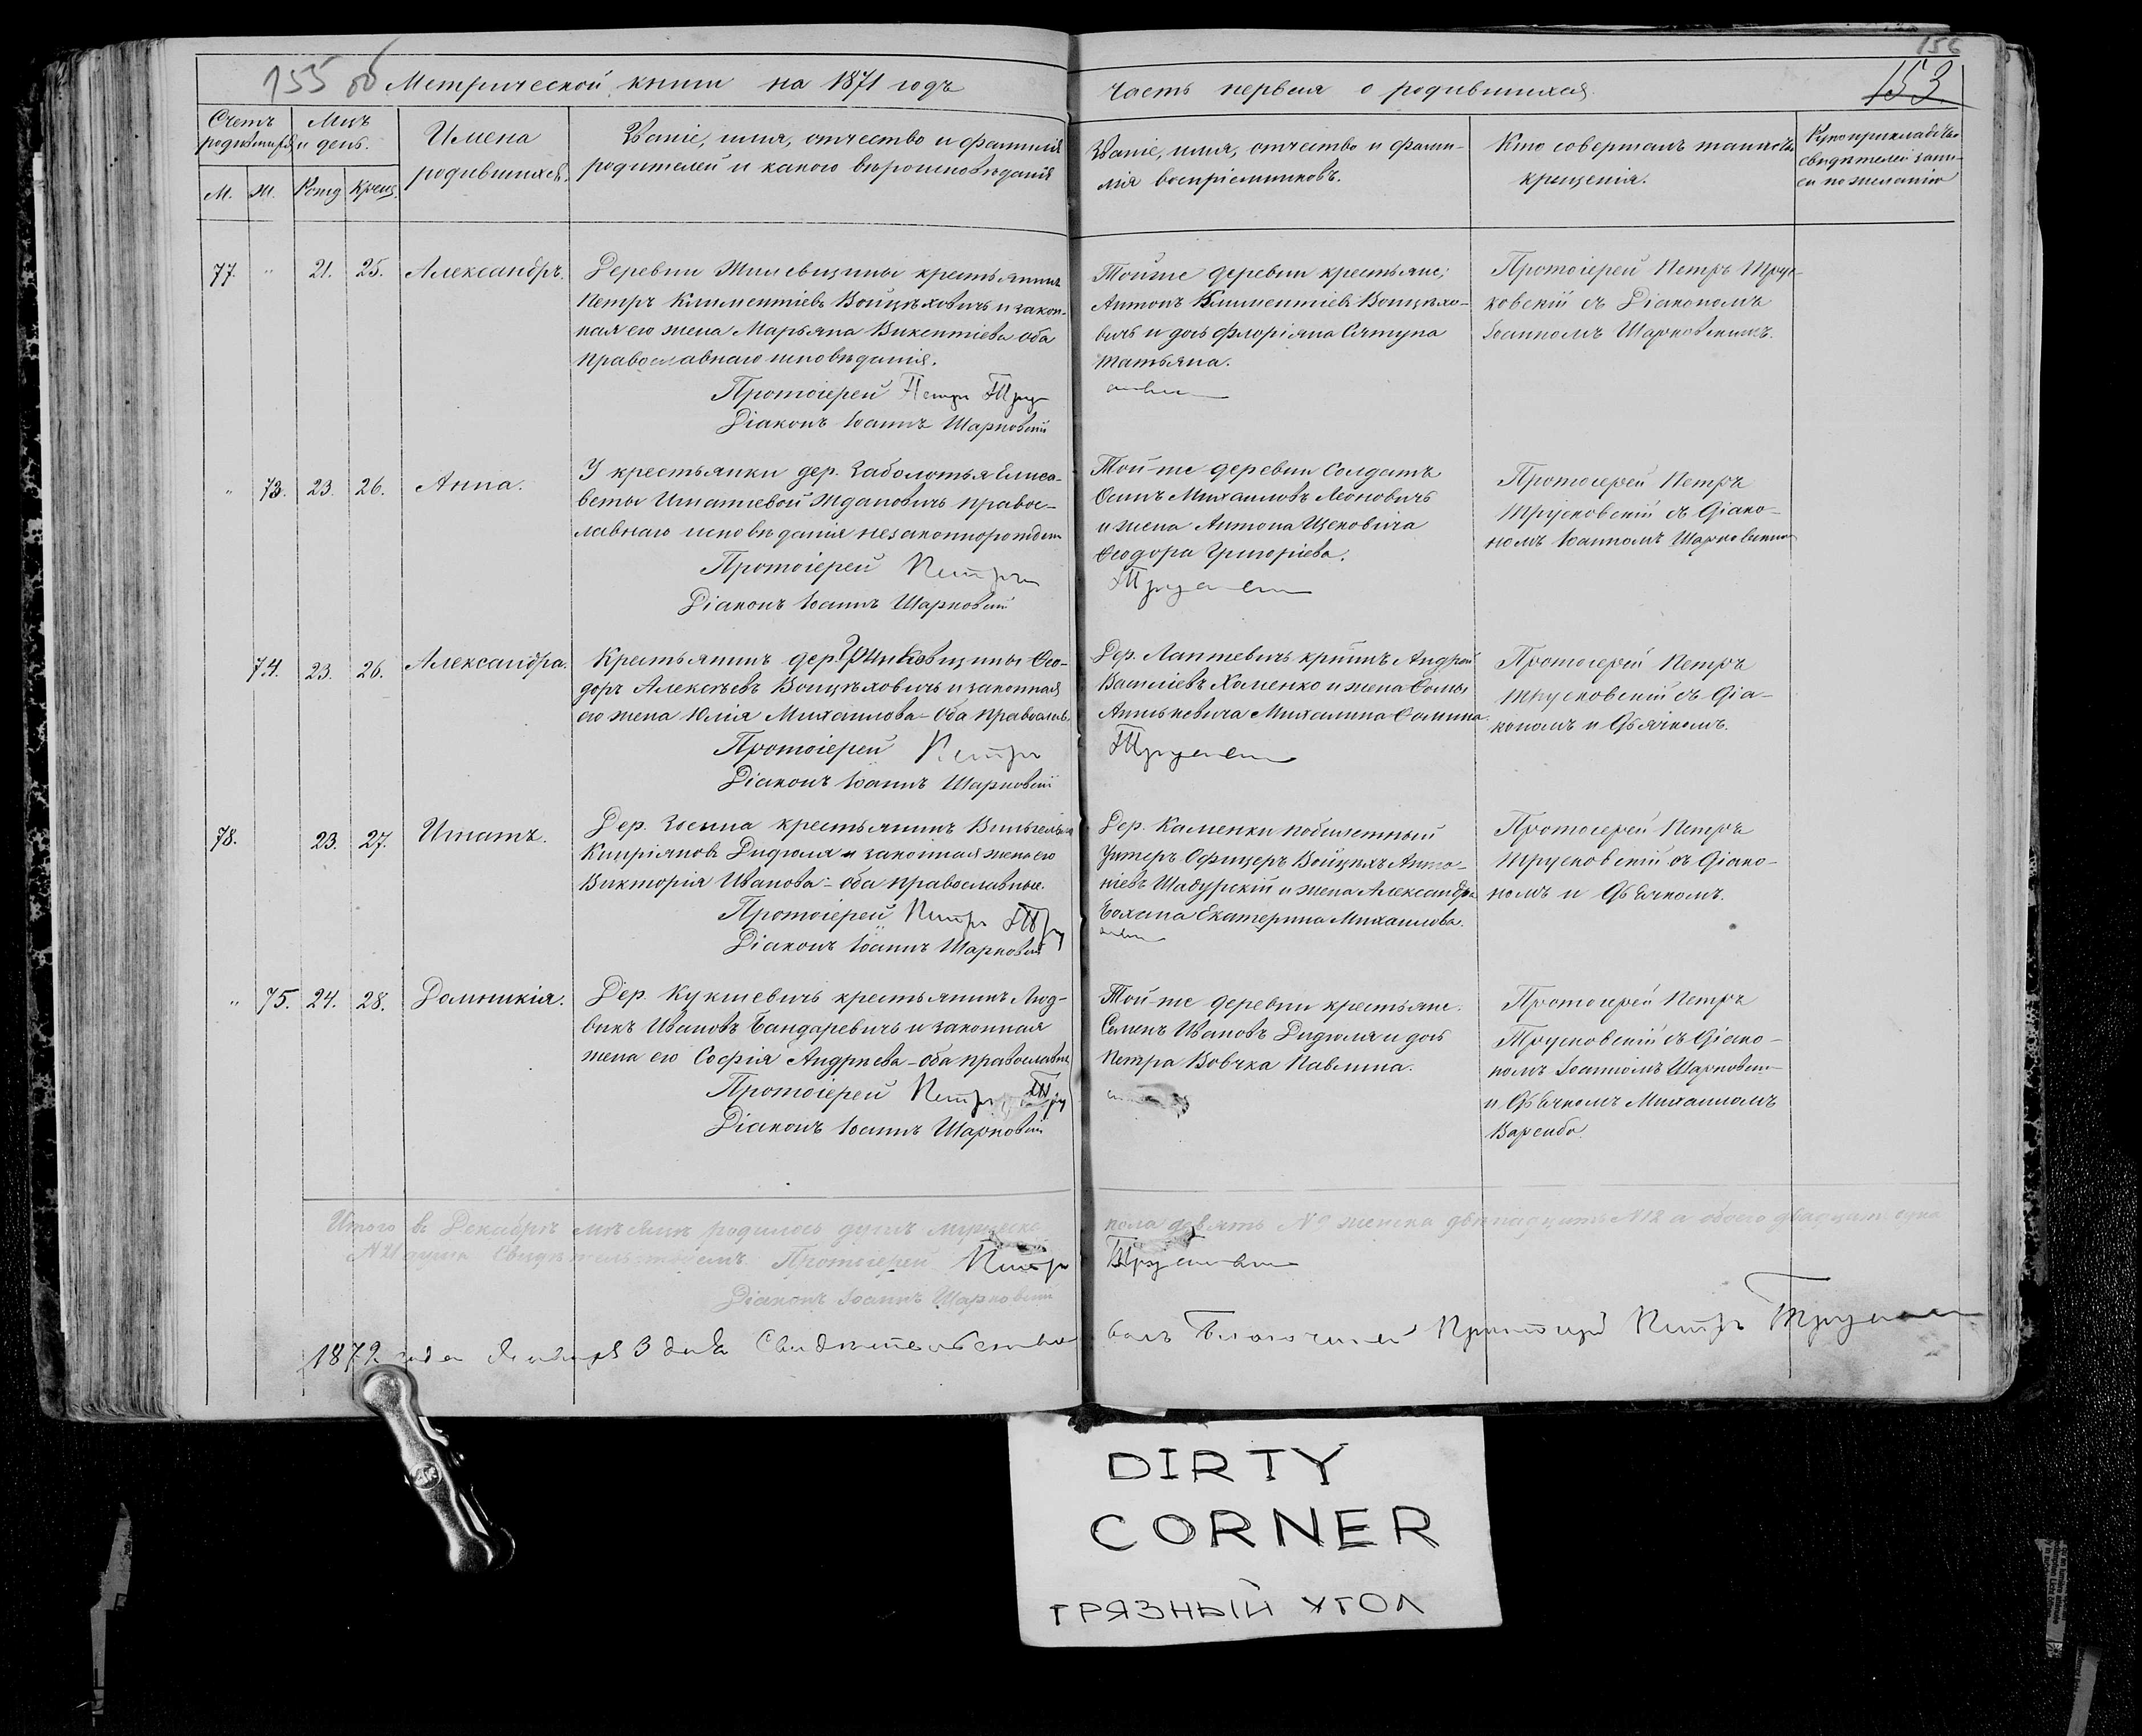 155 об Метрической книги на 1871 годъ
156
153
Часть первая о родившихся
Счетъ родившихся
Мцъ и день.
М. Ж. Рожд Крещ.
Имена родившихся.
Званіе, имя, отчество и фамилія
родителей и какого вѣроисповѣданія
Званіе, имя, отчество и фами-
лія воспріемниковъ.
Кто совершалъ таинство
крещенія.
Рукоприкладство
свидѣтелей запи-
си по желанію
77. " 21. 25. Александръ.
Деревни Жилевщины крестьянинъ
Петръ Климентіевъ Войцѣховичъ и закон-
ная его жена Марьяна Викентіева оба
православнаго исповѣданія.
Протоіерей Петръ
Діаконъ Іоаннъ Шарковскій
Тойже деревни крестьяне;
Антонъ Климентіевъ Войцѣхо-
вичъ и дочь Флоріяна Сятуна
Татьяна.
Протоіерей Петръ Трус-
ковскій съ Діакономъ
Іоанномъ Шарковскимъ.
" 73. 23. 26. Анна.
У крестьянки дер. Заболотья Елиса-
веты Игнатіевой Ждановичъ правос-
лавнаго исповѣданія незаконнорожден
Протоіерей Петръ
Діаконъ Іоаннъ Шарковскій
Той-же деревни Солдатъ
Осипъ Михаиловъ Леоновичъ
и жена Антона Щековича
Ѳеодора Григоріева.
Протоіерей Петръ
Трусковскій съ Діако-
номъ Іоанномъ Шарковскимъ
74. 23. 26. Александра.
Крестьянинъ дер. Ѳео-
доръ Алексѣевъ Войцѣховичъ и законная
его жена Юлія Михаилова - Оба православ.
Протоіерей Петръ
Діаконъ Іоаннъ Шарковскій
Дер. Лаптевичъ крпинъ Андрей
Василіевъ Хоменко и жена Ѳомы
Михалина Ѳомина.
Протоіерей Петръ
Трусковскій съ Діа-
кономъ и Дьячкомъ.
78. 23. 27. Игнатъ.
Дер. крестьянинъ Вильгельмъ
Кипріяновъ Дидюля и законная жена его
Викторія Иванова - оба православные.
Протоіерей Петръ
Діаконъ Іоаннъ Шарковскій
Дер. Каменки побилетный
Унтеръ Офицеръ Войцехъ Анто-
ніевъ Шадурскій и жена Александра
Екатерина Михаилова.
Протоіерей Петръ
Трусковскій съ Діако-
номъ и Дьячкомъ.
" 75. 24. 28. Домникія.
Дер. Кукшевичъ крестьянинъ Люд-
викъ Ивановъ Бандаревичъ и законная
жена его Софія Андреева - оба православные
Протоіерей Петръ
Діаконъ Іоаннъ Шарковскій
Той-же деревни крестьяне.
Семенъ Ивановъ Дидюля и дочь
Петра Вовчка Павлина.
Протоіерей Петръ
Трусковскій съ Діако-
номъ Іоанномъ Шарковским
и Дьячкомъ Михаиломъ
Итого въ Декабрѣ мѣсяцѣ родилось душъ мужеска
пола девять № женска двѣнадцать №12 а обоего двадцать одна
№21 душа Свидѣтельствуемъ Протоіерей Петръ
Діаконъ Іоаннъ Шарковскій
1872 года Января 3 дня Свидѣтельство
валъ Благочинный Протоіерей Петръ
DIRTY
CORNER
ГРЯЗНЫЙ УГОЛ